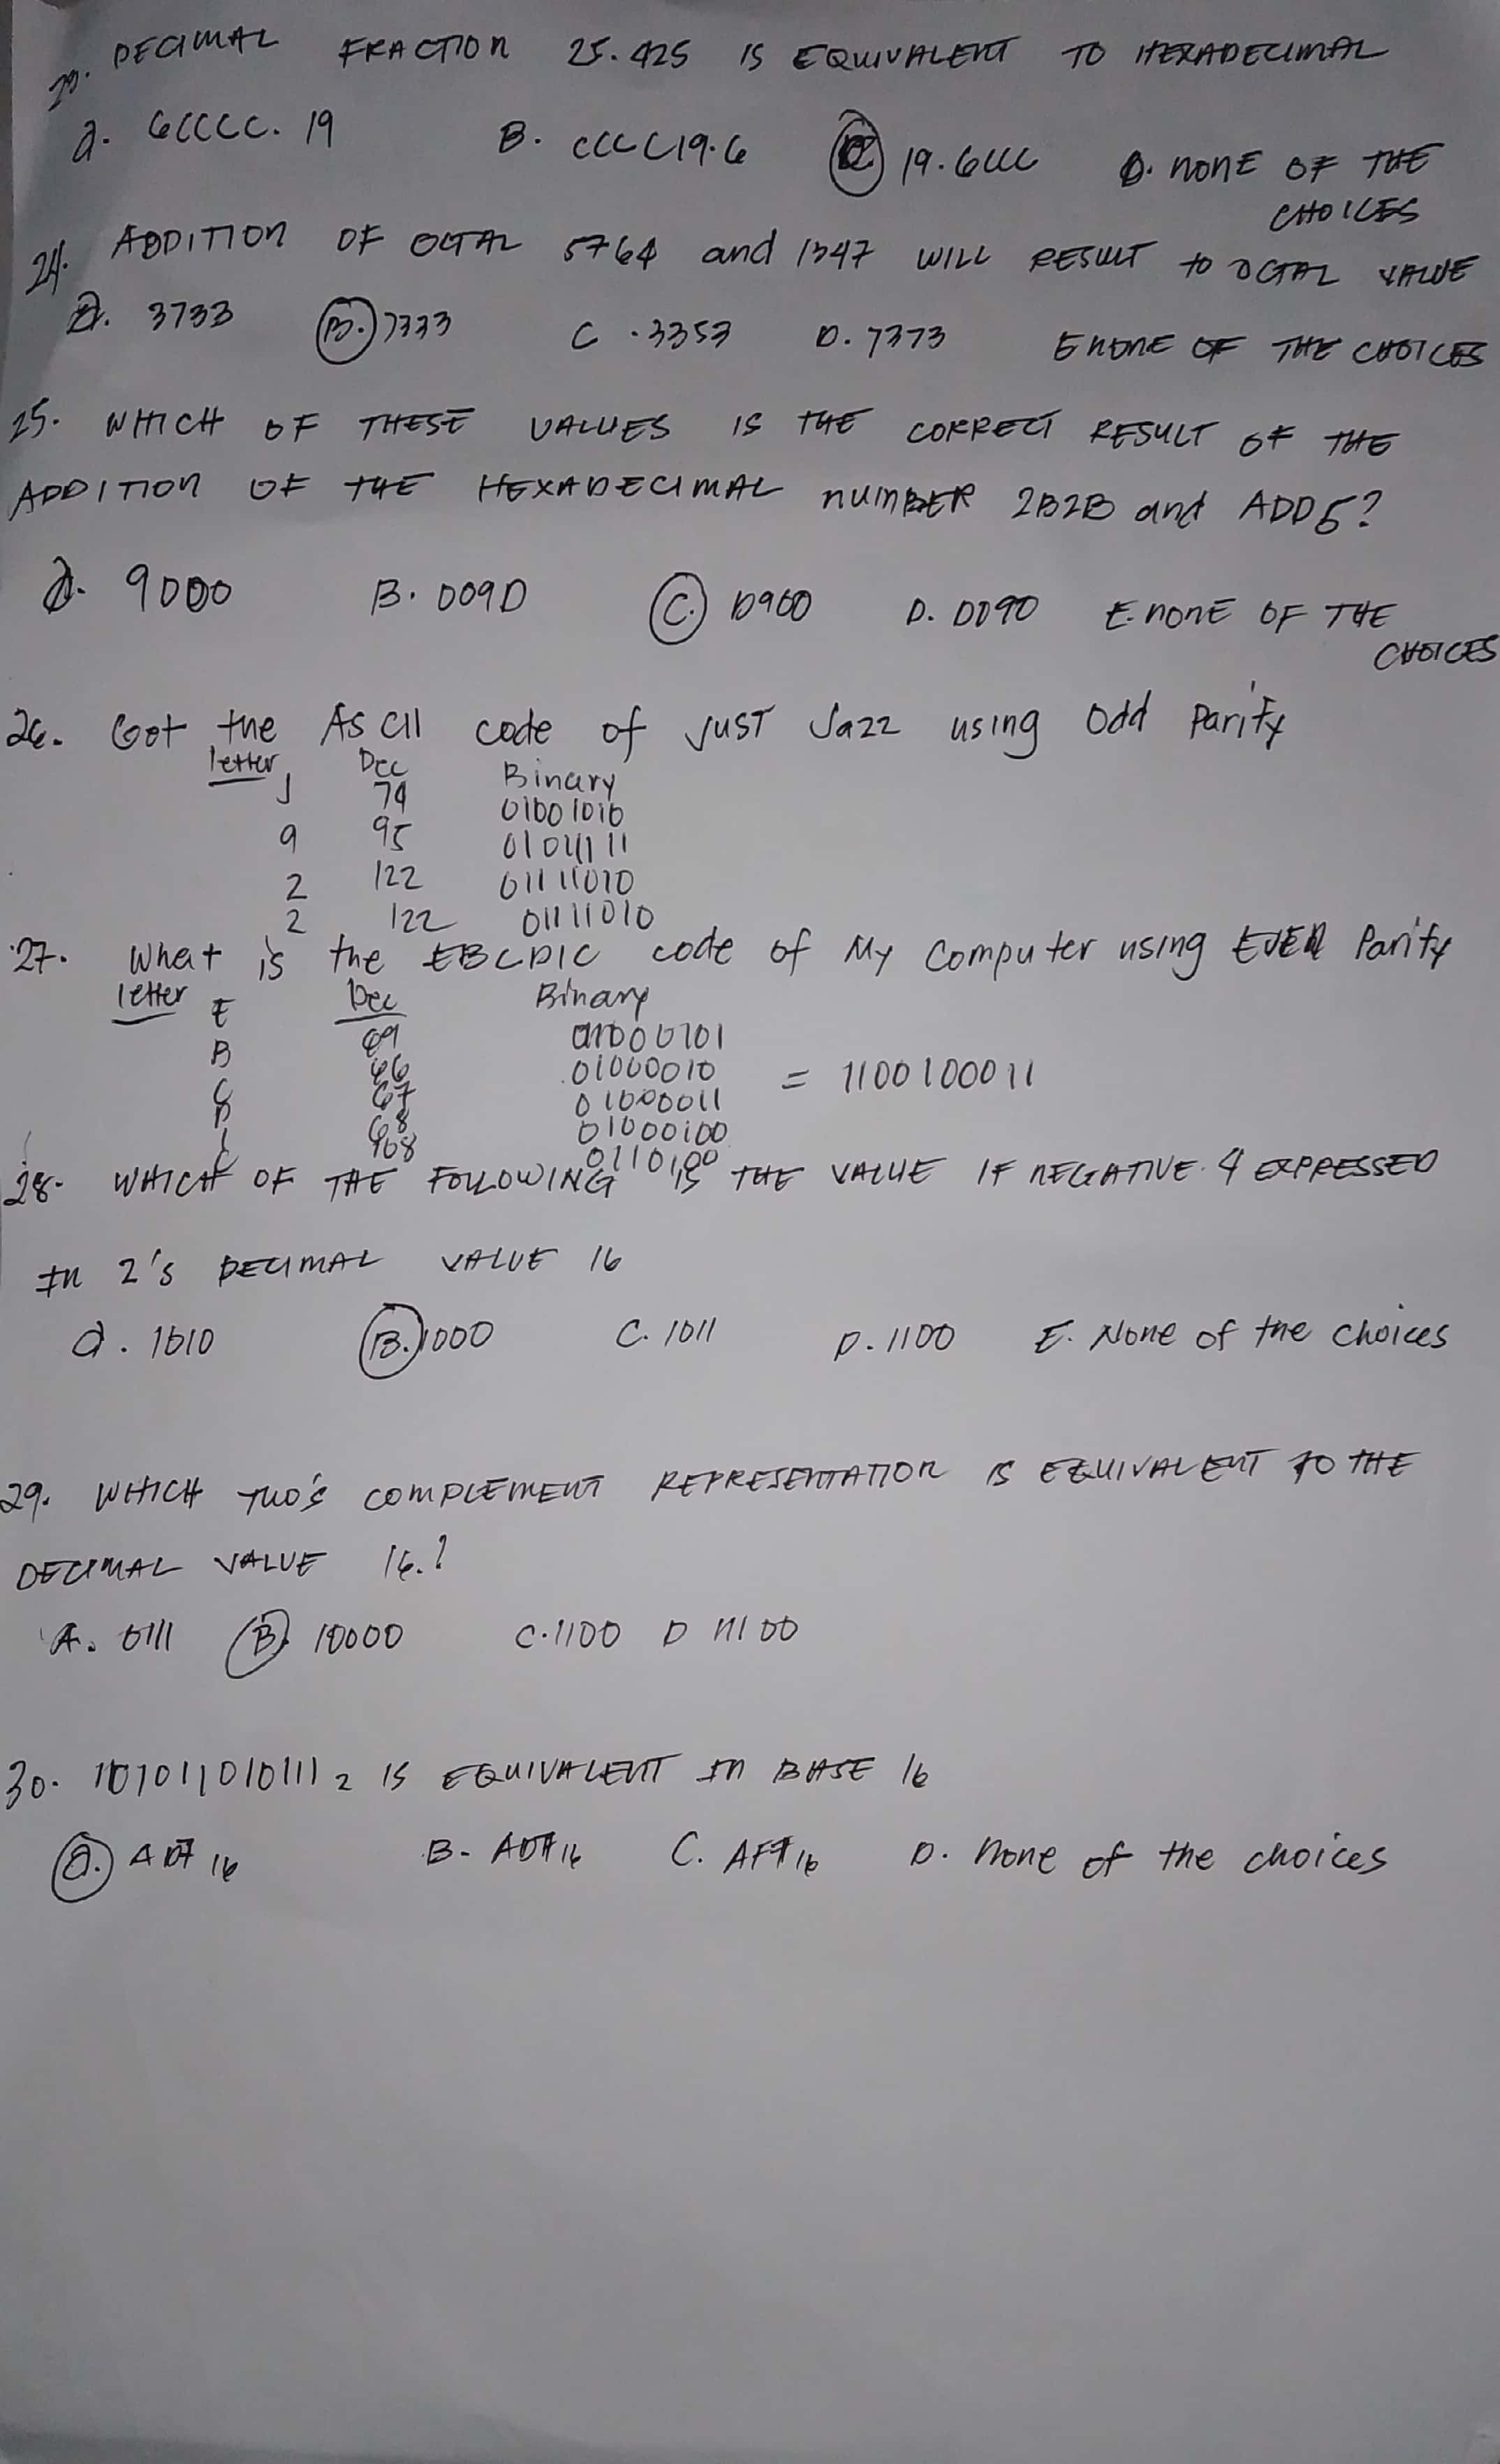 DECIMAL FRACTION 25.425 IS EQUIVALENT TO HEXADECIMAL
a. 6CCCC.19 B. CCCC19.6 19.6CCC D. NONE OF THE CHOICES
24. ADDITION OF OCTAL 5764 and 1347 WILL RESULT to OCTAL VALUE
a. 3733 B. 7333 C. 3353 D. 7373 E NONE OF THE CHOICES
25. WHICH OF THESE VALUES IS THE CORRECT RESULT OF THE
ADDITION OF THE HEXADECIMAL NUMBER 2B2B and ADD5?
a. 9D00 B. 009D C. D900 D. D090 E. NONE OF THE CHOICES
26. Get the ASCII code of JUST Jazz using Odd Parity
letter Dec Binary
J 74 01001010
a 95 01011111
z 122 01111010
z 122 01111010
27. What is the EBCDIC code of My Computer using EVEN Parity
letter Dec Binary
E 69 01000101
B 66 01000010 = 1100100011
C 67 01000011
D 68 01000100
I 108 0110100
C
28. WHICH OF THE FOLLOWING IS THE VALUE IF NEGATIVE 4 EXPRESSED
IN 2's DECIMAL VALUE 16
a. 1010 B. 1000 C. 1011 D. 1100 E. None of the choices
29. WHICH TWO'S COMPLEMENT REPRESENTATION IS EQUIVALENT TO THE
DECIMAL VALUE 16.?
A. 0111 B. 10000 C. 1100 D 11100
30. 101011010111 2 IS EQUIVALENT IN BASE 16
a. AD7 16 B. ADA 16 C. AF7 16 D. None of the choices